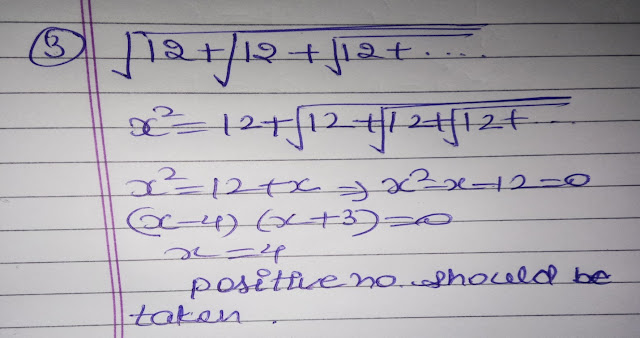 (3) √12+√12+√12+....
x²=12+√12+√12+√12+...
x²=12+x ⇒ x²-x-12=0
(x-4) (x+3)=0
x=4
positive no. should be
taken.